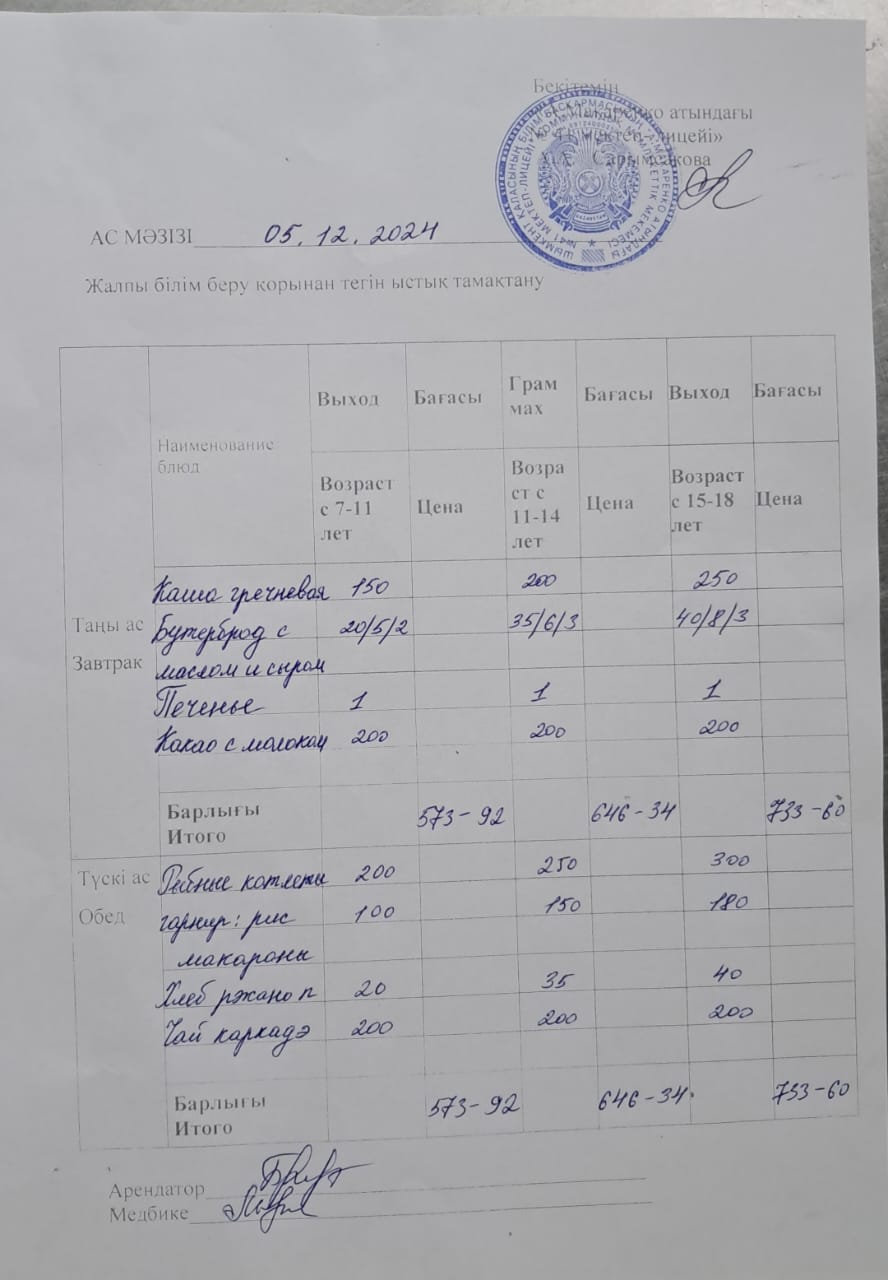 Бекітемін
Макаренко атындағы
мектеп-лицейі»
Сарымекова
АС МӘЗІЗІ 05.12.2024
Жалпы білім беру қорынан тегін ыстық тамақтану
Наименование блюд Выход Бағасы Грам мах Бағасы Выход Бағасы
Возраст с 7-11 лет Цена Возра ст с 11-14 лет Цена Возраст с 15-18 лет Цена
Таңы ас
Завтрак
Каша гречневая 150 200 250
Бутерброд с 20/5/2 35/6/3 40/8/3
маслом и сыром
Печенье 1 1 1
Какао с молоком 200 200 200
Барлығы
Итого 573-92 646-34 733-60
Түскі ас
Обед
Рыбные котлеты 200 250 300
гарнир: рис 100 150 180
макароны
Хлеб ржано п 20 35 40
Чай каркадэ 200 200 200
Барлығы
Итого 573-92 646-34 753-60
Арендатор
Медбике